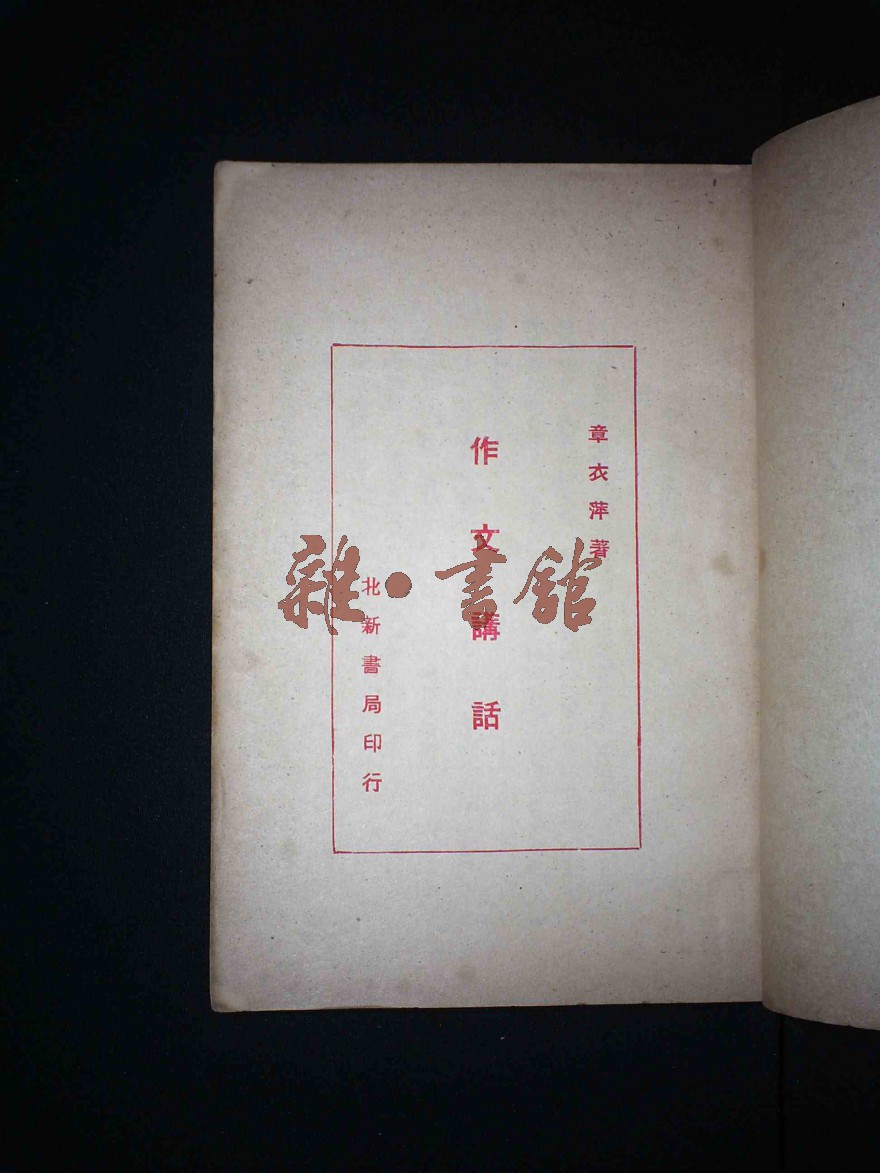 章衣萍著
作文講話
北新書局印行
雜·書館